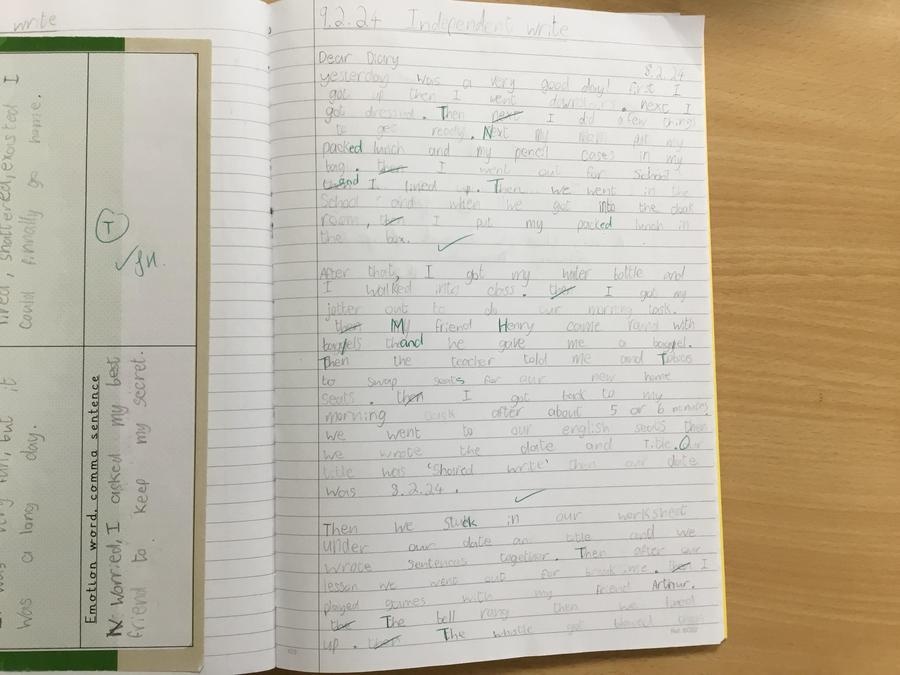 write
tired, shattered, exosted I
could finnally go home.
very fun, but it
was a long day.
T
Emotion word, comma sentence
Worried, I asked my best
friend to keep my secret.
9.2.24 Independent write
Dear Diary 8.2.24
yesterday was a very good day! First I
got up then I went downstairs. next I
got dressed. Then next I did a few things
to get ready. Next my mom put my
packed lunch and my pencil cases in my
bag. then I went out for school
and I lined up. Then we went in the
School and when we got into the cloak
room, then I put my packed lunch in
the box.
After that, I got my water bottle and
I walked into class. then I got my
jotter out to do our morning task.
then My friend Henry came round with
bagels and he gave me a bagel.
Then the teacher told me and
to swap seats for our new home
seats. then I got back to my
morning task after about 5 or 6 minutes.
we went to our english seats then
we wrote the date and Title. Our
title was 'Shared write' then our date
was 8.2.24.
Then we stuck in our worksheet
under our date an title and we
wrote sentences together. Then after our
lesson we went out for then I
played games with my friend Arthur.
the The bell rang then we lined
up. then The whistle got blowed